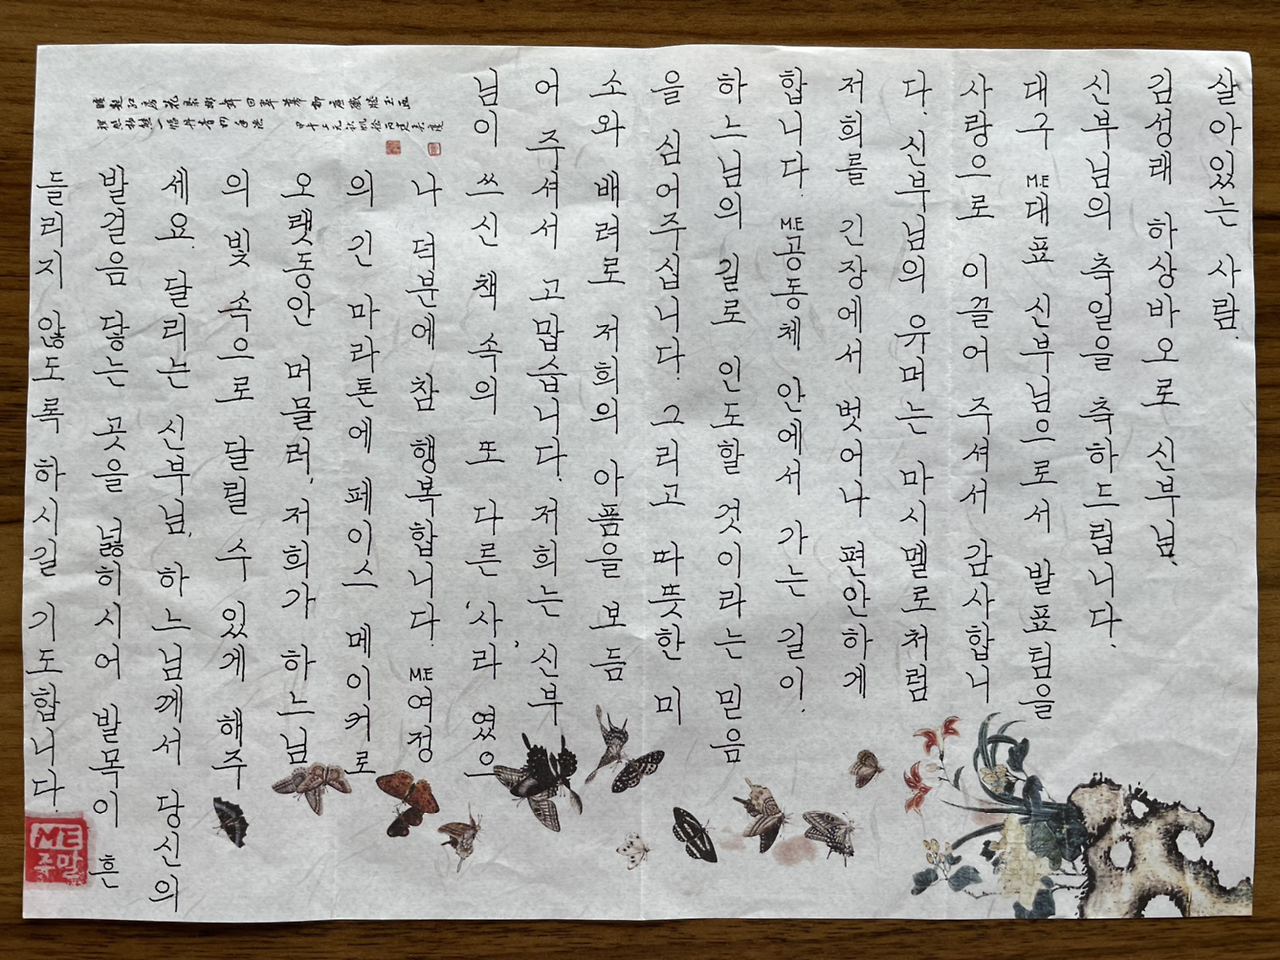 살아있는 사람.
김성래 하상바오로 신부님.
신부님의 축일을 축하드립니다.
대구 ME대표 신부님으로서 발표팀을
사랑으로 이끌어 주셔서 감사합니
다. 신부님의 유머는 마시멜로처럼
저희를 긴장에서 벗어나 편안하게
합니다. ME공동체 안에서 가는 길이.
하느님의 길로 인도할 것이라는 믿음
을 심어주십니다. 그리고 따뜻한 미
소와 배려로 저희의 아픔을 보듬
어 주셔서 고맙습니다. 저희는, 신부
님이 쓰신 책 속의 또 다른 '사라 였으
나 덕분에 참 행복합니다. ME여정
의 긴 마라톤에 페이스 메이커로
오랫동안 머물러, 저희가 하느님
의 빛 속으로 달릴 수 있게 해주
세요. 달리는 신부님, 하느님께서 당신의
발걸음 닿는 곳을 넓히시어 발목이 흔
들리지 않도록 하시길 기도합니다.
ME
주말